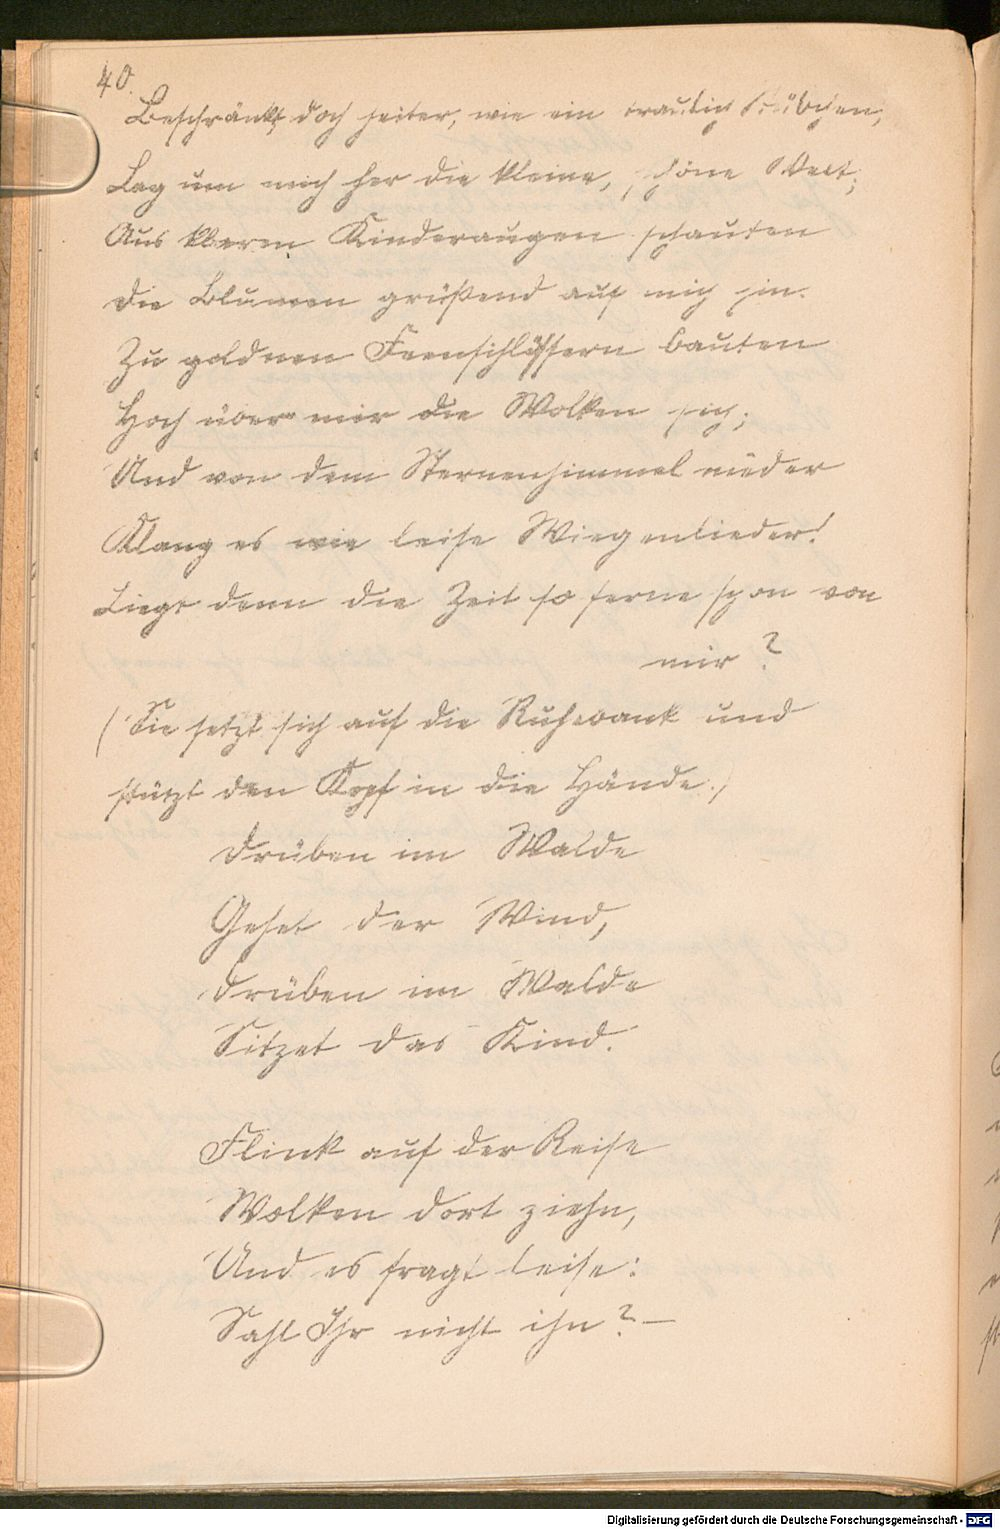 40.
Beschränkt doch heiter, wie ein traulich Stübchen,
Lag um mich her die kleine, schöne Welt;
Aus klaren Kinderaugen schauten
Die Blumen grüßend auf mich hin.
Zu goldnen Feenschlössern bauten
Hoch über mir die Wolken sich;
Und von dem Sternenhimmel nieder
Klang es wie leise Wiegenlieder!
Liegt denn die Zeit so ferne schon von
mir?
(Sie setzt sich auf die Ruhebank und
stützt den Kopf in die Hände.)
Drüben im Walde
Gehet der Wind,
Drüben im Walde
Sitzet das Kind.
Flink auf der Reise
Wolken dort ziehn,
Und es fragt leise:
Saht Ihr nicht ihn? —
Digitalisierung gefördert durch die Deutsche Forschungsgemeinschaft - DFG